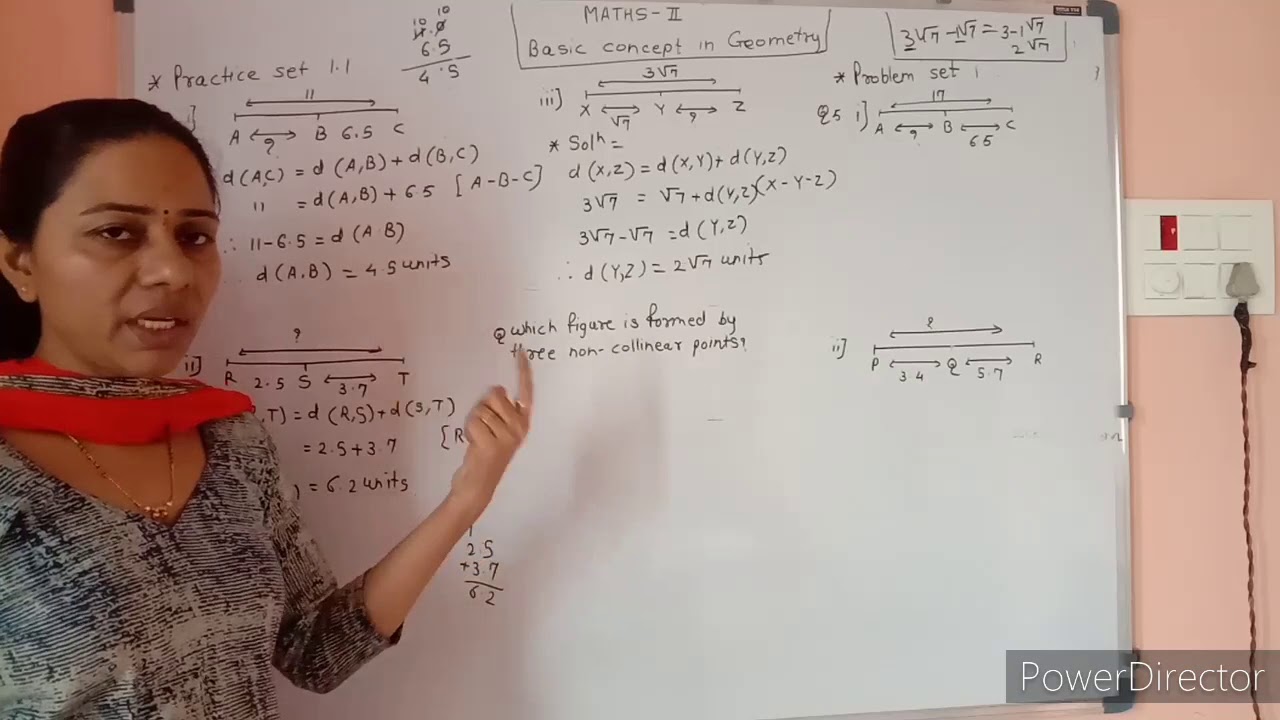 MATHS-II
Basic concept in Geometry
3√7 - 1√7 = 3-1√7
2√7
10 10
11.0
6.5
4.5
* Practice set 1.1
i]
11
A ? B 6.5 C
d(A,C) = d(A,B) + d(B,C)
11 = d(A,B) + 6.5 [A-B-C]
∴ 11-6.5 = d(A.B)
d(A,B) = 4.5 units
ii]
?
R 2.5 S 3.7 T
,T) = d(R,S)+d(S,T)
= 2.5+3.7 [R
) = 6.2 units
1
2.5
+3.7
6.2
iii]
3√7
X √7 Y ? Z
* Solⁿ =
d(X,Z) = d(X,Y) + d(Y,Z)
3√7 = √7 + d(Y,Z) (X-Y-Z)
3√7-√7 = d(Y,Z)
∴ d(Y,Z) = 2√7 units
Q which figure is formed by
three non-collinear points?
* Problem set 1
Q5 i]
17
A ? B C
6.5
ii]
?
P 3.4 Q 5.7 R
PowerDirector